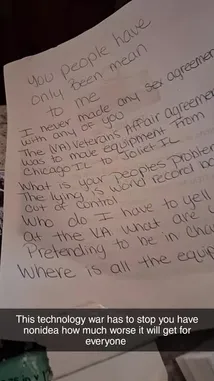 you people have
only been mean
to me
I never made any sex agreeme
with any of you
The (VA) Veterans Affair agreeme
was to move equipment From
Chicago IL to Joliet IL
What is your peoples Problem
The lying is world record
out of control
Who do I have to yell
at the VA what are
Pretending to be in cha
Where is all the equip
This technology war has to stop you have
nonidea how much worse it will get for
everyone